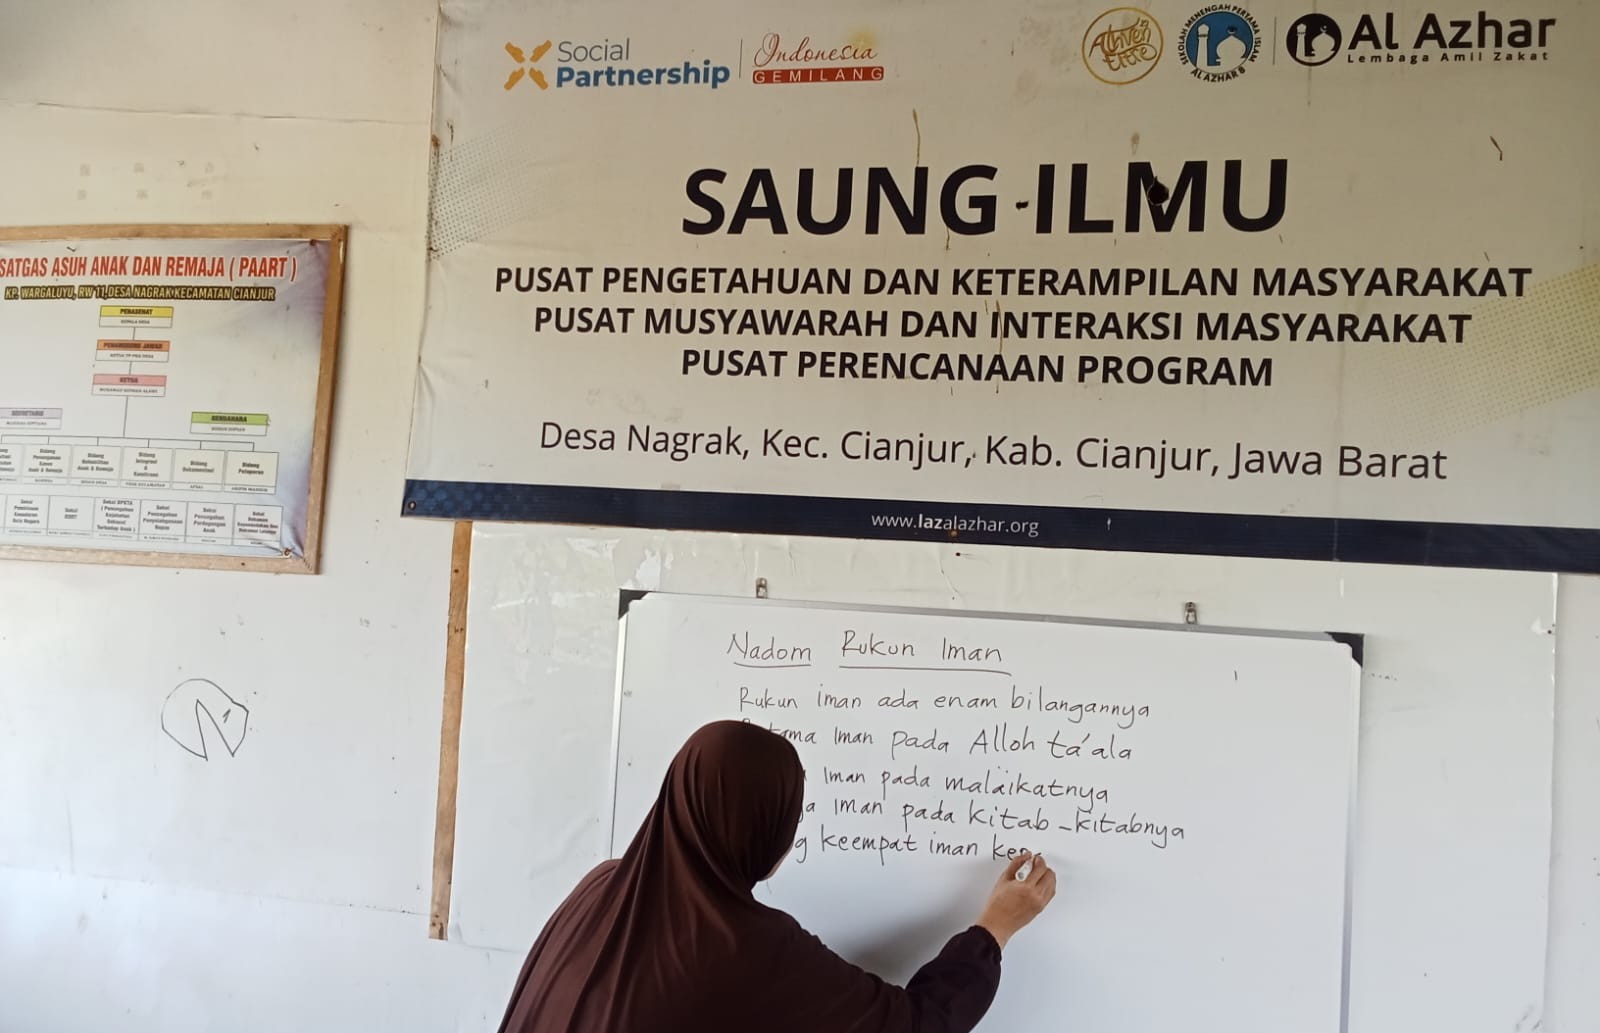 Social
Partnership
Indonesia
GEMILANG
SEKOLAH MENENGAH PERTAMA ISLAM
AL AZHAR 8
Al Azhar
Lembaga Amil Zakat
SAUNG ILMU
PUSAT PENGETAHUAN DAN KETERAMPILAN MASYARAKAT
PUSAT MUSYAWARAH DAN INTERAKSI MASYARAKAT
PUSAT PERENCANAAN PROGRAM
Desa Nagrak, Kec. Cianjur, Kab. Cianjur, Jawa Barat
www.lazalazhar.org
SATGAS ASUH ANAK DAN REMAJA ( PAART )
KP. WARGALUYU, RW 11, DESA NAGRAK KECAMATAN CIANJUR
PENASEHAT
KEPALA DESA
PENANGGUNG JAWAB
KETUA TP PKK DESA
KETUA
SEKRETARIS
BENDAHARA
Bidang
Rehabilitasi
Anak & Remaja
Bidang
Integrasi
&
Bidang
Dokumentasi
Bidang
Pelaporan
Nadom Rukun Iman
Rukun iman ada enam bilangannya
Iman pada Alloh ta'ala
Iman pada malaikatnya
Iman pada kitab-kitabnya
keempat iman